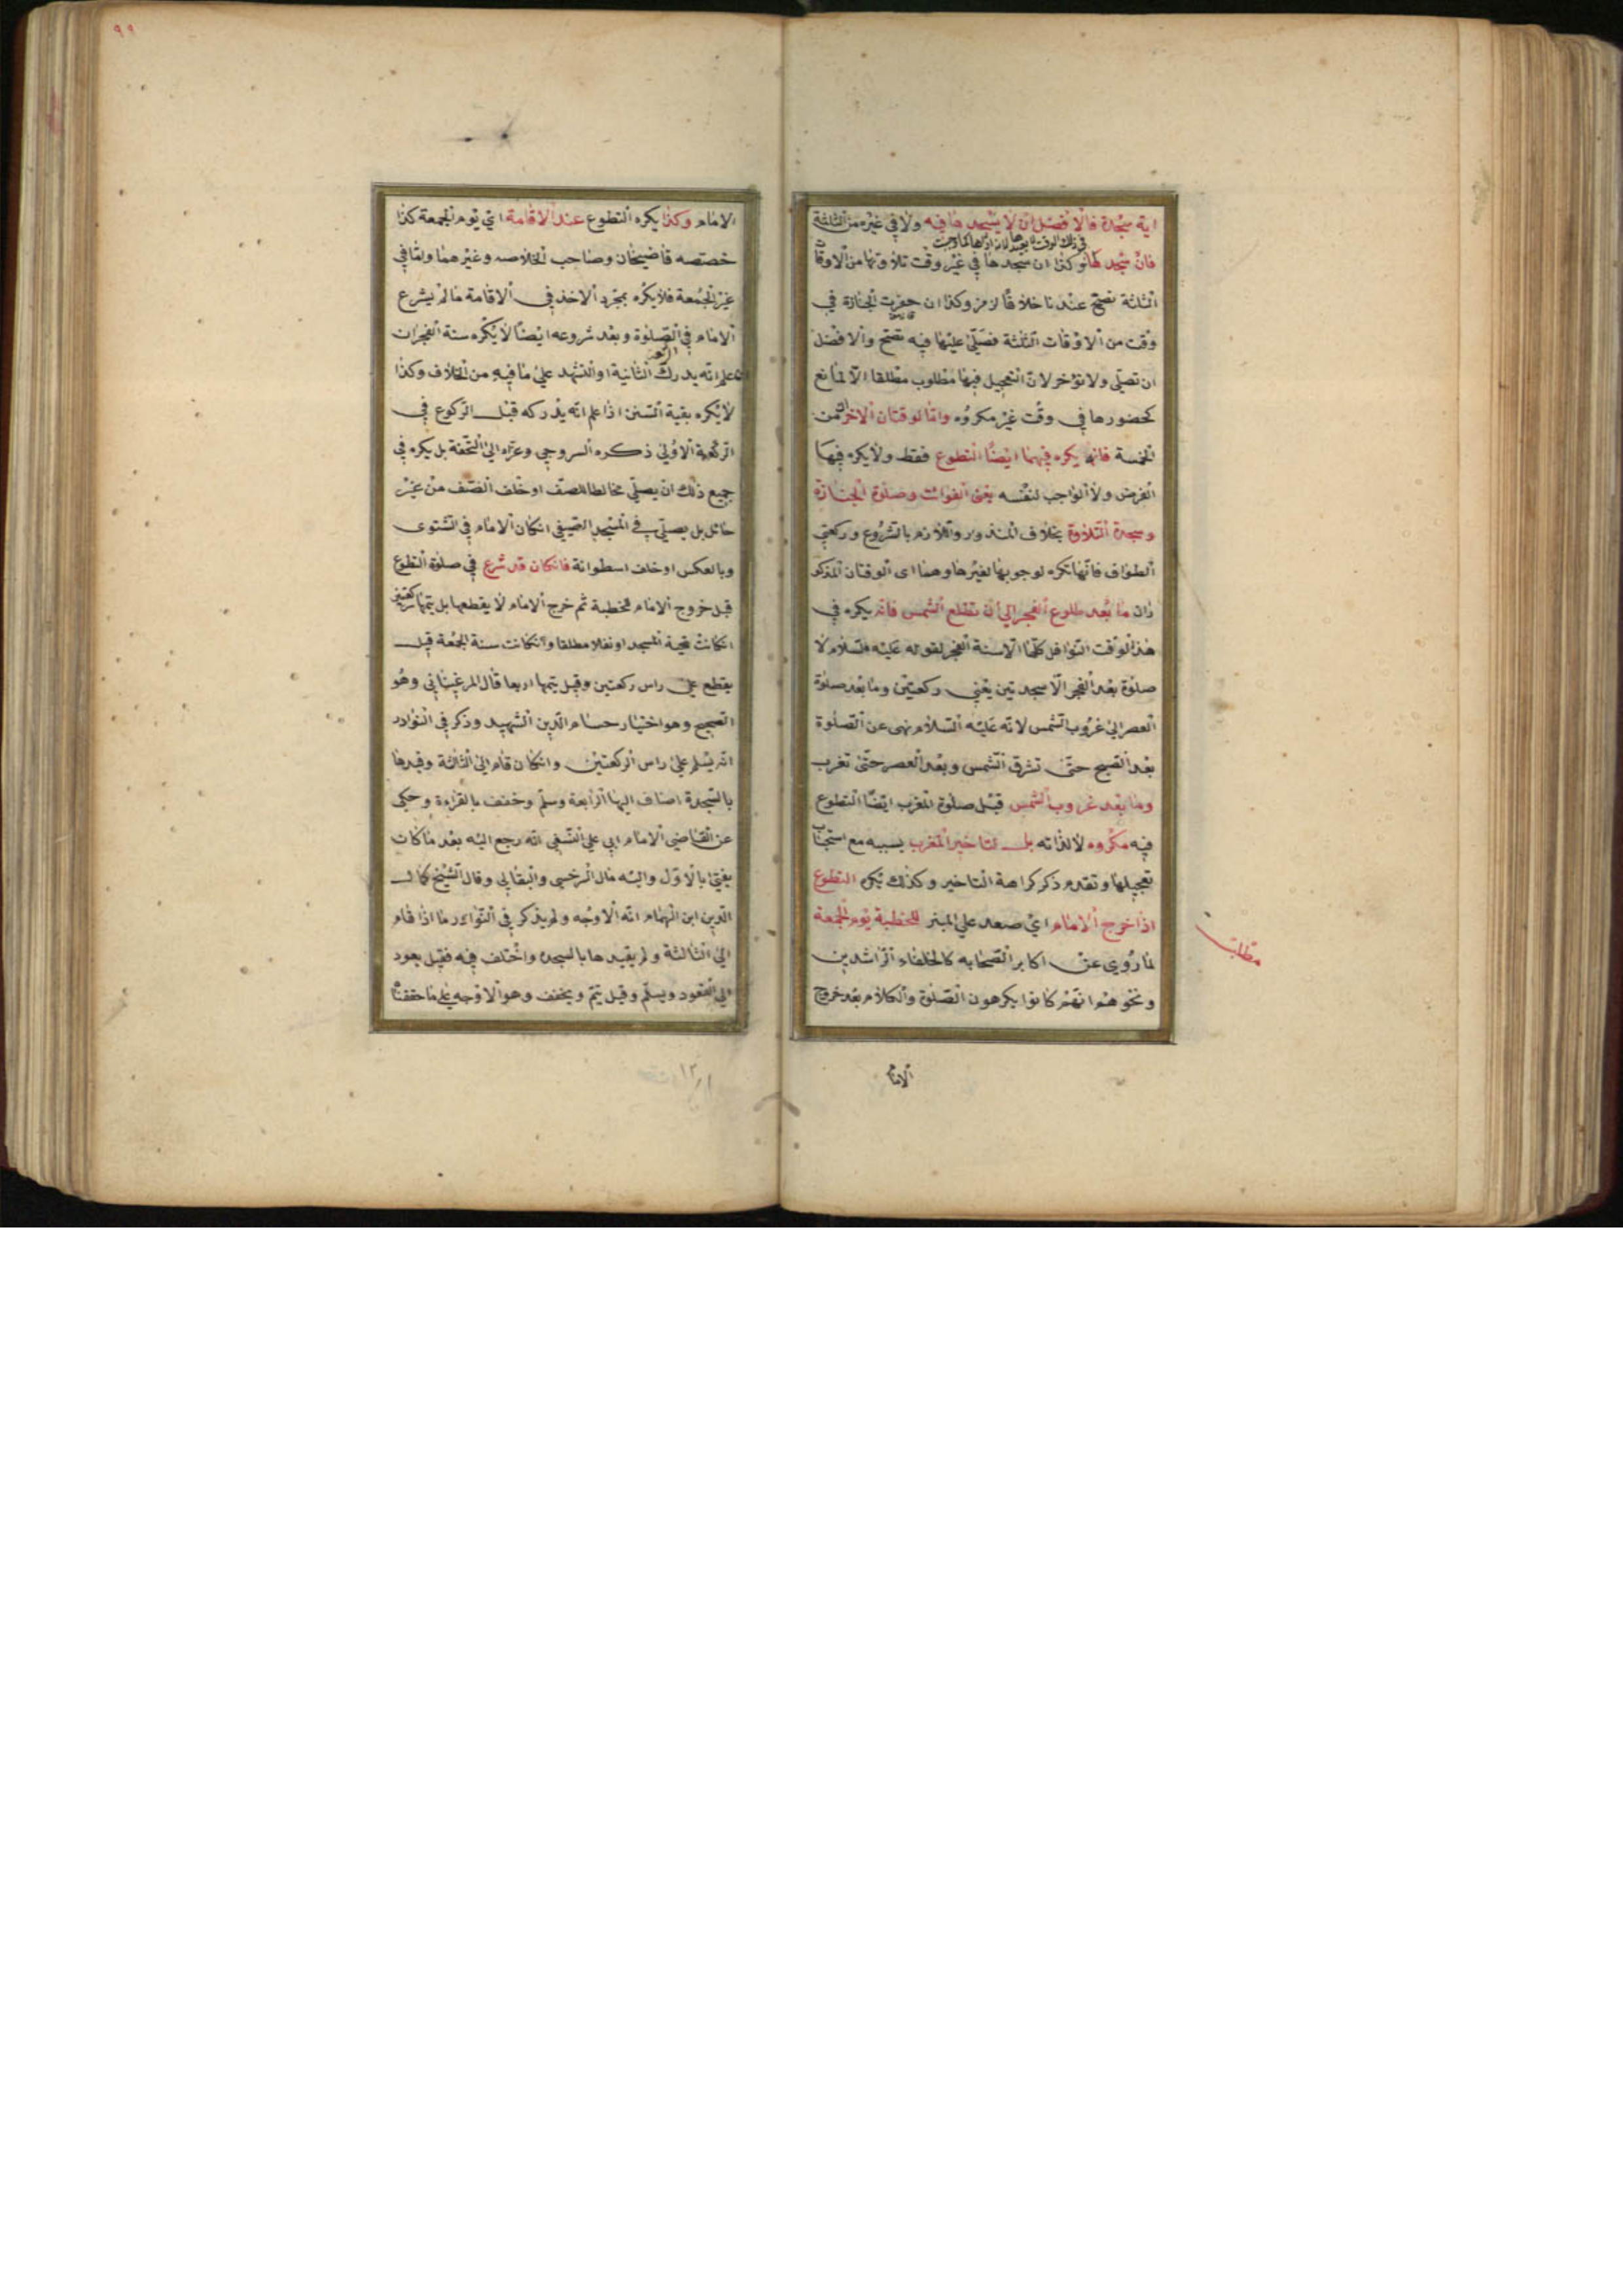 اية سجدة فالافضل ان لا يسجدها فيه ولا في غيره من الثلثة
فان سجد لها وكذا ان سجدها في غير وقت تلاوتها من الاوقات
الثلثة تصح عندنا خلافا لزفر وكذا ان حضرت الجنازة في
وقت من الاوقات الثلثة فصلى عليها فيه تصح والافضل
ان تصلى ولا تؤخر لان التعجيل فيها مطلوب مطلقا الا لمانع
كحضورها في وقت غير مكروه واما الوقتان الاخران من
الخمسة فانه يكره فيهما ايضا التطوع فقط ولا يكره فيها
الفرض ولا الواجب لنفسه يعنى الفوائت وصلوة الجنازة
وسجدة التلاوة بخلاف المنذور واللازم بالشروع وركعتي
الطواف فانها تكره لوجوبها لغيرها وهما اى الوقتان المذكو
ران ما بعد طلوع الفجر الى ان تطلع الشمس فانه يكره في
هذا الوقت النوافل كلها الا سنة الفجر لقوله عليه السلام لا
صلوة بعد الفجر الا سجدتين يعني ركعتين وما بعد صلوة
العصر الى غروب الشمس لانه عليه السلام نهى عن الصلوة
بعد الصبح حتى تشرق الشمس وبعد العصر حتى تغرب
وما بعد غروب الشمس قبل صلوة المغرب ايضا التطوع
فيه مكروه لا لذاته بل لتاخير المغرب بسببه مع استحباب
تعجيلها وتقدم ذكر كراهة التاخير وكذلك يكره التطوع
اذا خرج الامام اي صعد على المنبر للخطبة يوم الجمعة
لما روي عن اكابر الصحابه كالخلفاء الراشدين
ونحوهم انهم كانوا يكرهون الصلوة والكلام بعد خروج
الامام
مطلب
٩٩
الامام وكذا يكره التطوع عند الاقامة اي يوم الجمعة كذا
خصصه قاضيخان وصاحب الخلاصه وغيرهما واما في
غير الجمعة فلا يكره بمجرد الاخذ في الاقامة ما لم يشرع
الامام في الصلوة وبعد شروعه ايضا لا يكره سنة الفجر ان
علم انه يدرك الثانية او التشهد على ما فيه من الخلاف وكذا
لا يكره بقية السنن اذا علم انه يدركه قبل الركوع في
الركعة الاولى ذكره السروجي وعزاه الى التحفة بل يكره في
جميع ذلك ان يصلي مخالطا للصف او خلف الصف من غير
حائل بل يصلي في المسجد الصيفي ان كان الامام في الشتوى
وبالعكس او خلف اسطوانة فان كان قد شرع في صلوة التطوع
قبل خروج الامام للخطبة ثم خرج الامام لا يقطعها بل يتمها ركعتين
ان كانت تحية المسجد او نفلا مطلقا وان كانت سنة الجمعة قيل
يقطع على راس ركعتين وقيل يتمها اربعا قال المرغيناني وهو
الصحيح وهو اختيار حسام الدين الشهيد وذكر في النوادر
انه يسلم على راس الركعتين وان كان قام الى الثالثة وقيدها
بالسجدة اضاف اليها الرابعة وسلم وخفف بالقراءة وحكى
عن القاضي الامام ابي علي النسفي انه رجع اليه بعد ما كان
يفتي بالاول واليه مال السرخسي والبقالي وقال الشيخ كمال
الدين ابن الهمام انه الاوجه ولم يذكر في النوادر ما اذا قام
الى الثالثة ولم يقيدها بالسجدة واختلف فيه فقيل يعود
الى القعود ويسلم وقيل يتم ويخفف وهو الاوجه على ما حققنا